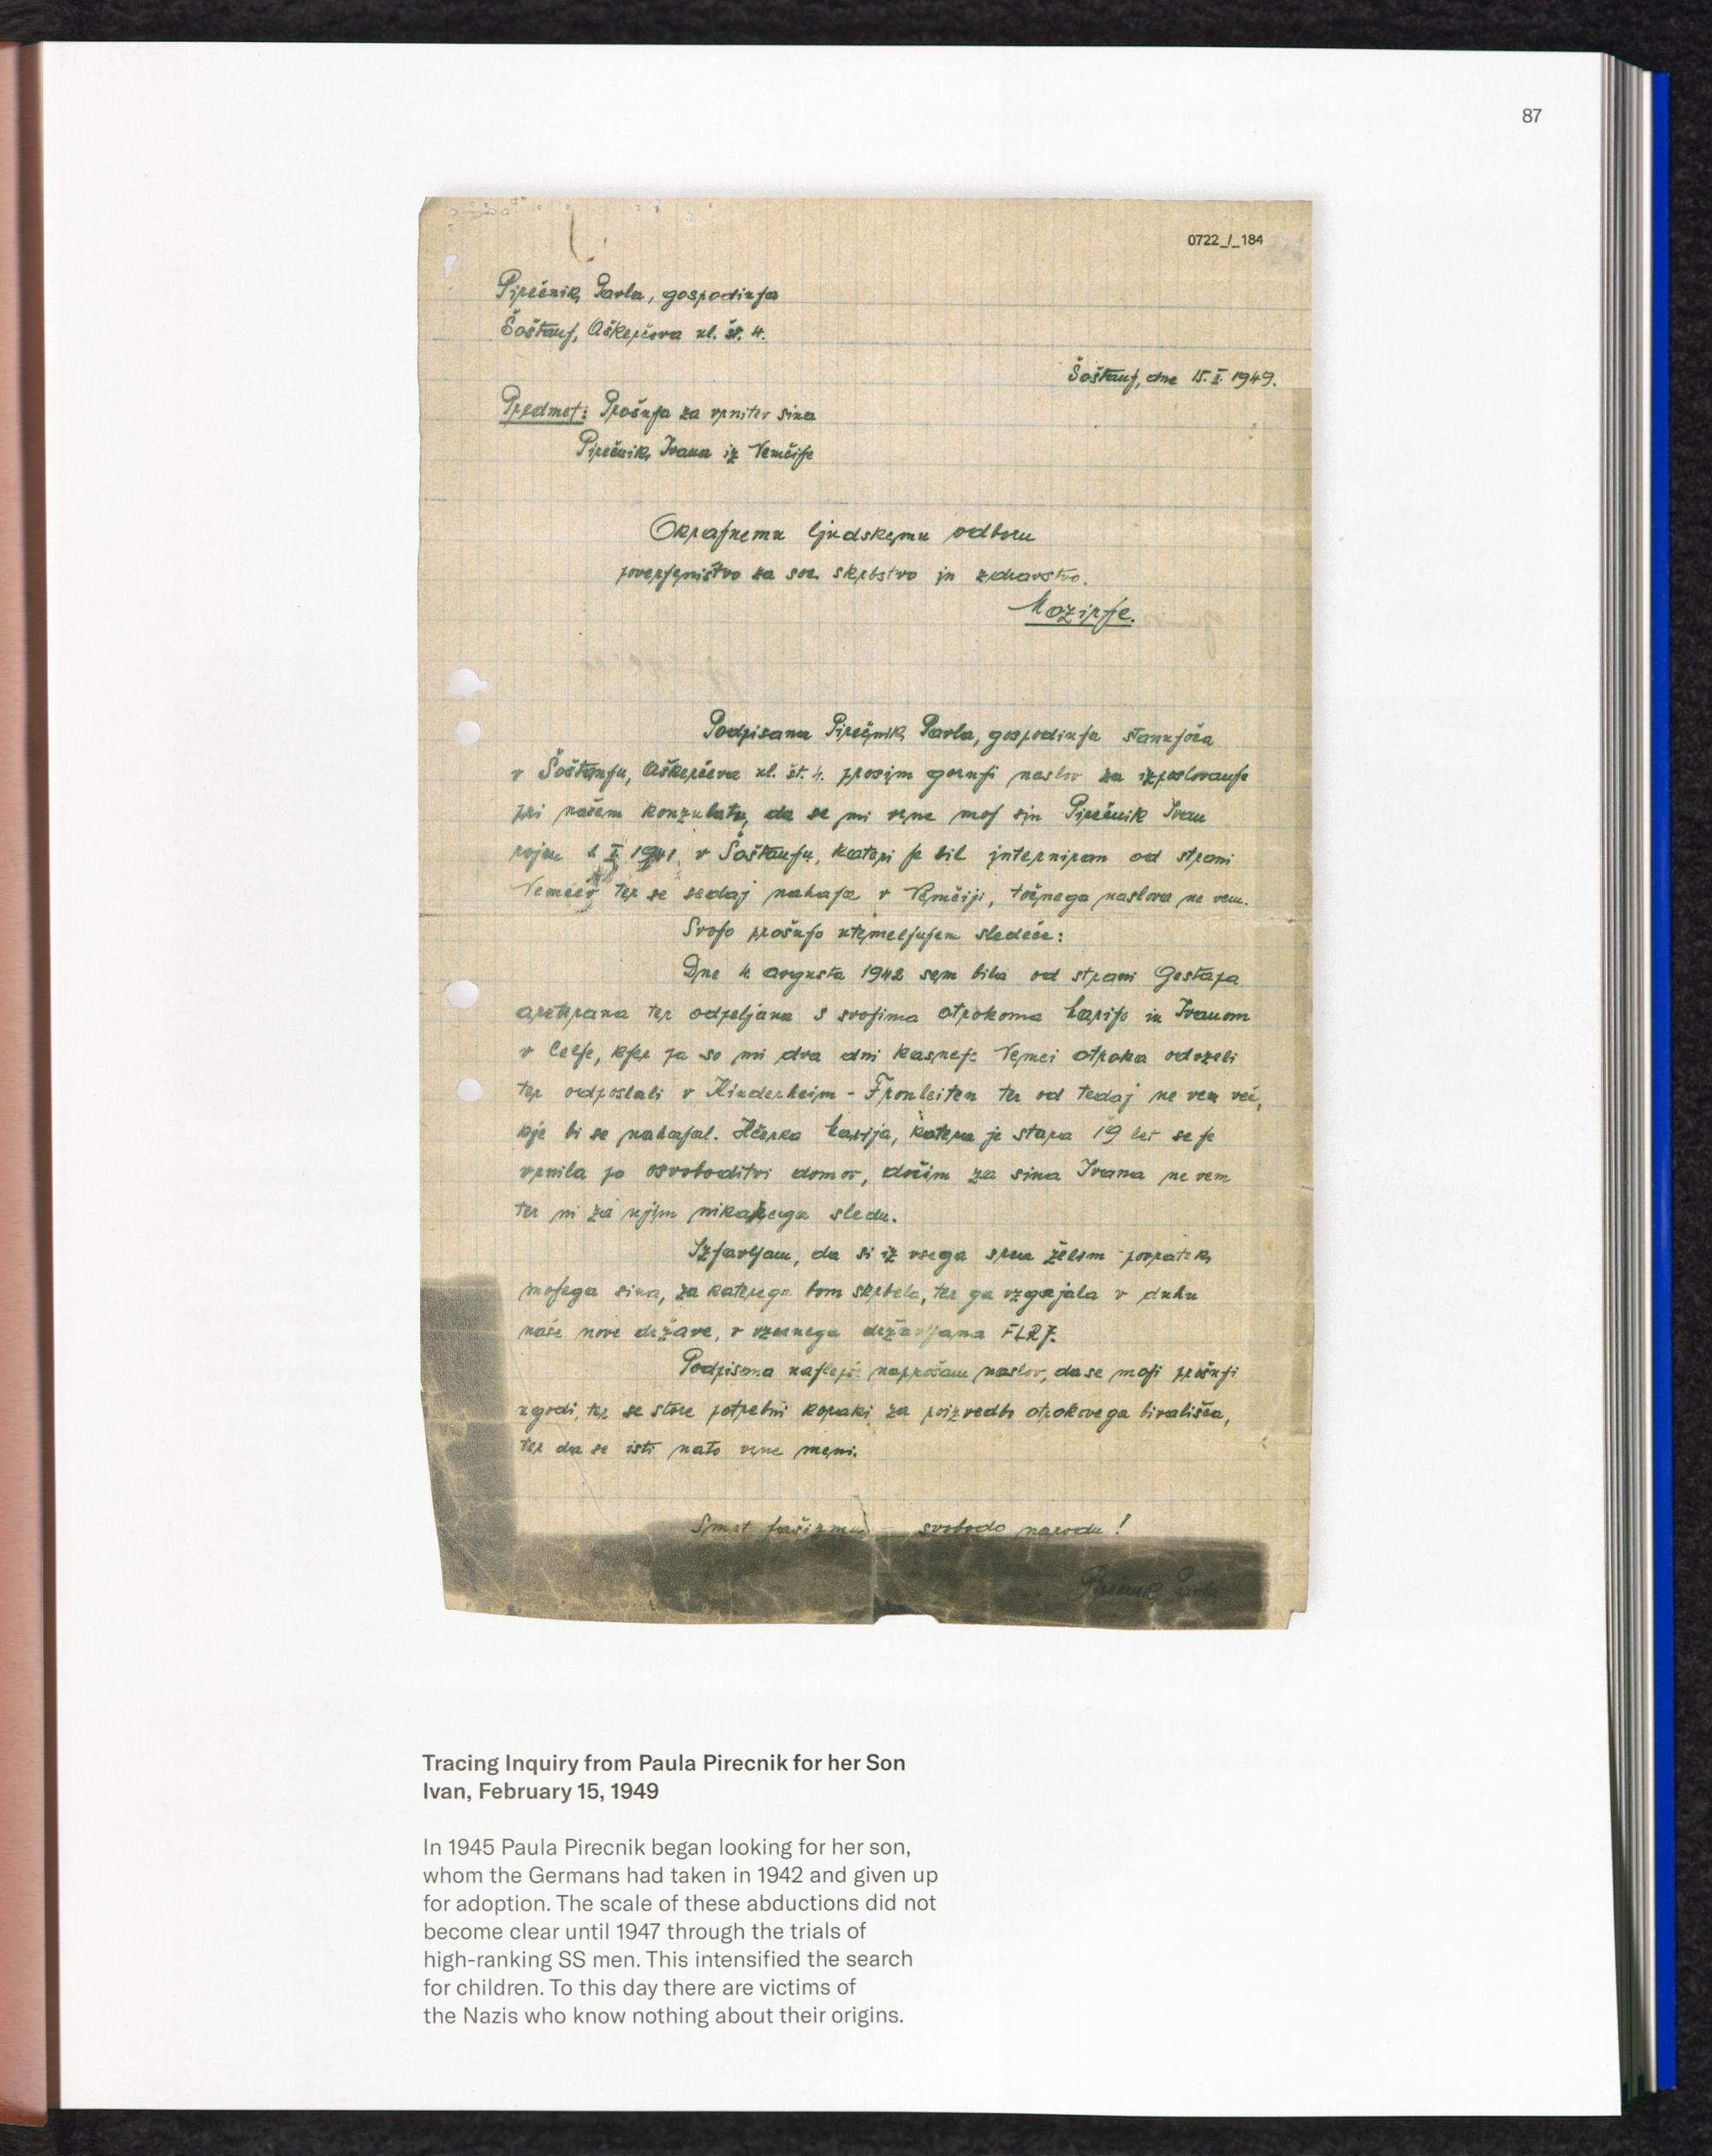 87
0722_/_184
Pirečnik Pavla, gospodinja
Šoštanj, Aškerčeva ul. št. 4.
Šoštanj, dne 15. II. 1949.
Predmet: Prošnja za vrnitev sina
Pirečnik Ivana iz Nemčije
Okrajnemu ljudskemu odboru
poverjeništvo za soc. skrbstvo in zdravstvo.
Mozirje.
Podpisana Pirečnik Pavla, gospodinja stanujoča
v Šoštanju, Aškerčeva ul. št. 4. prosim gornji naslov za izposlovanje
pri našem konzulatu, da se mi vrne moj sin Pirečnik Ivan
rojen 1941 v Šoštanju, kateri je bil interniran od strani
Nemcev ter se sedaj nahaja v Nemčiji, točnega naslova ne vem.
Svojo prošnjo utemeljujem sledeče:
Dne 4. avgusta 1942 sem bila od strani Gestapa
aretirana ter odpeljana s svojima otrokoma Marijo in Ivanom
v Celje, kjer pa so mi dva dni kasneje Nemci otroka odvzeli
ter odposlali v Kinderheim - Fronleiten ter od tedaj ne vem več,
kje bi se nahajal. Hčerka Marija, katera je stara 19 let se je
vrnila po osvoboditvi domov, dočim za sina Ivana ne vem
ter ni za njim nikakega sledu.
Izjavljam, da si iz vsega srca želim povratek
mojega sina, za katerega bom skrbela, ter ga vzgajala v duhu
naše nove države, v vzornega državljana FLRJ.
Podpisana najlepše naprošam naslov, da se moji prošnji
ugodi, ter se store potrebni koraki za poizvedbo otrokovega bivališča,
ter da se isti nato vrne meni.
Smrt fašizmu - svobodo narodu!
Pirečnik Pavla
Tracing Inquiry from Paula Pirecnik for her Son
Ivan, February 15, 1949
In 1945 Paula Pirecnik began looking for her son,
whom the Germans had taken in 1942 and given up
for adoption. The scale of these abductions did not
become clear until 1947 through the trials of
high-ranking SS men. This intensified the search
for children. To this day there are victims of
the Nazis who know nothing about their origins.